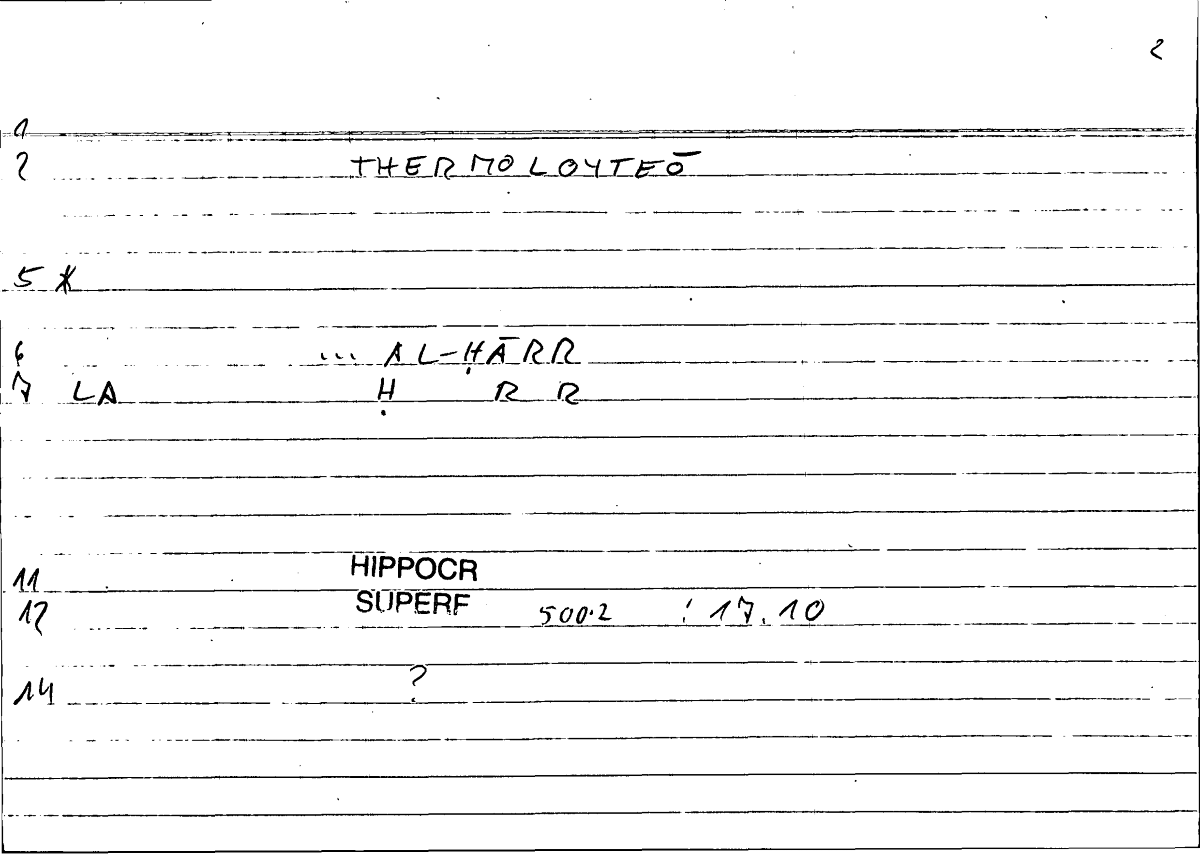 2
1
2 THERMOLOYTEŌ
5 *
6 ... AL-ḤĀRR
7 LA Ḥ R R
11 HIPPOCR
12 SUPERF 500.2 : 17.10
14 ?